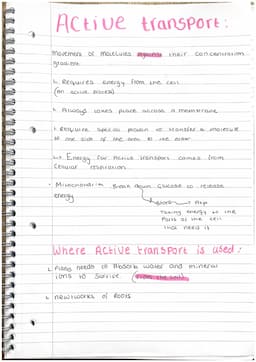 Active transport:
Movement of molecules against their concentration
gradient
↳ Requires energy from the cell
(an active process)
↳ Always takes place across a membrane
↳ Requires special protein to transfer a molecule
to one side of the area to the other
↳ Energy for Active transport comes from
cellular respiration
- Mitochondria Break down Glucose to release
energy
Help
Taking energy to the
Parts of the cell
that need it
Where Active transport is used:
↳ Plants needs to Absorb water and mineral
ions to survive (from the soil)
↳ networks of Roots